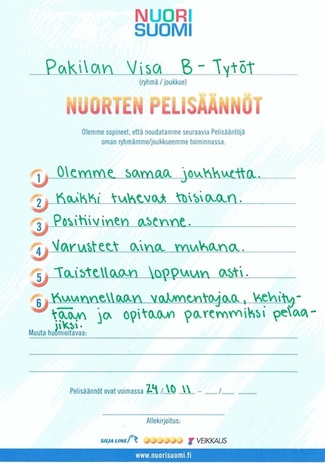 NUORI
SUOMI
Pakilan Visa B - Tytöt
(ryhmä / joukkue)
NUORTEN PELISÄÄNNÖT
Olemme sopineet, että noudatamme seuraavia Pelisääntöjä
oman ryhmämme/joukkueemme toiminnassa.
1 Olemme samaa joukkuetta.
2 Kaikki tukevat toisiaan.
3 Positiivinen asenne.
4 Varusteet aina mukana.
5 Taistellaan loppuun asti.
6 Kuunnellaan valmentajaa, kehity-
tään ja opitaan paremmiksi pelaa-
jiksi.
Muuta huomioitavaa:
Pelisäännöt ovat voimassa 24/10 11 – __/__ __
Allekirjoitus:
SILJA LINE VEIKKAUS
www.nuorisuomi.fi